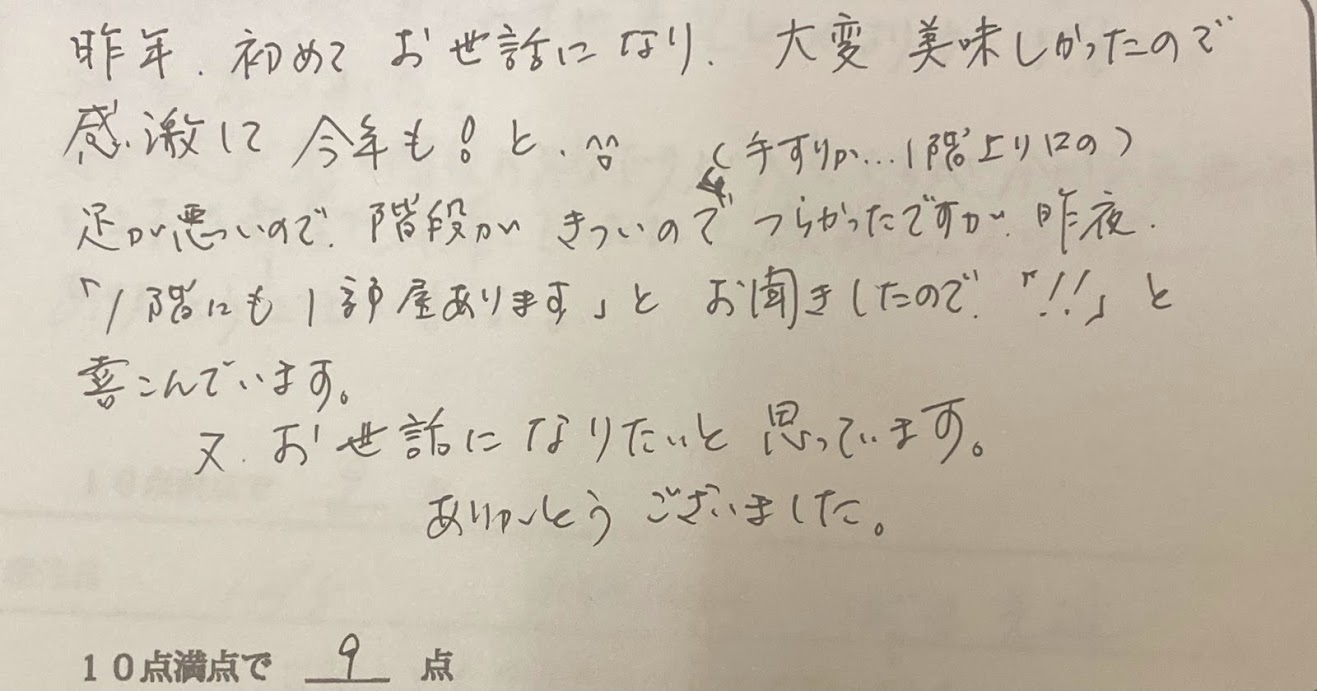 昨年、初めて お世話になり、大変 美味しかったので
感激して 今年も!と、^^ (手すりが…1階上り口の)
足が悪いので、階段が きついので つらかったですが、昨夜、
「1階にも1部屋あります」と お聞きしたので、「!!」と
喜こんでいます。
又、お世話になりたいと 思っています。
ありがとう ございました。
10点満点で 9 点